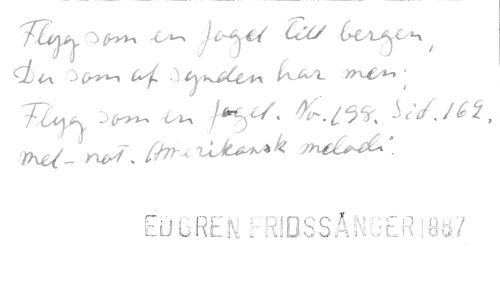 Flyg som en fogel till bergen,
Du som af synden har men;
Flyg som en fogel. No. 198. Sid. 169.
mel-not. Amerikansk melodi.
EDGREN FRIDSSÅNGER 1887